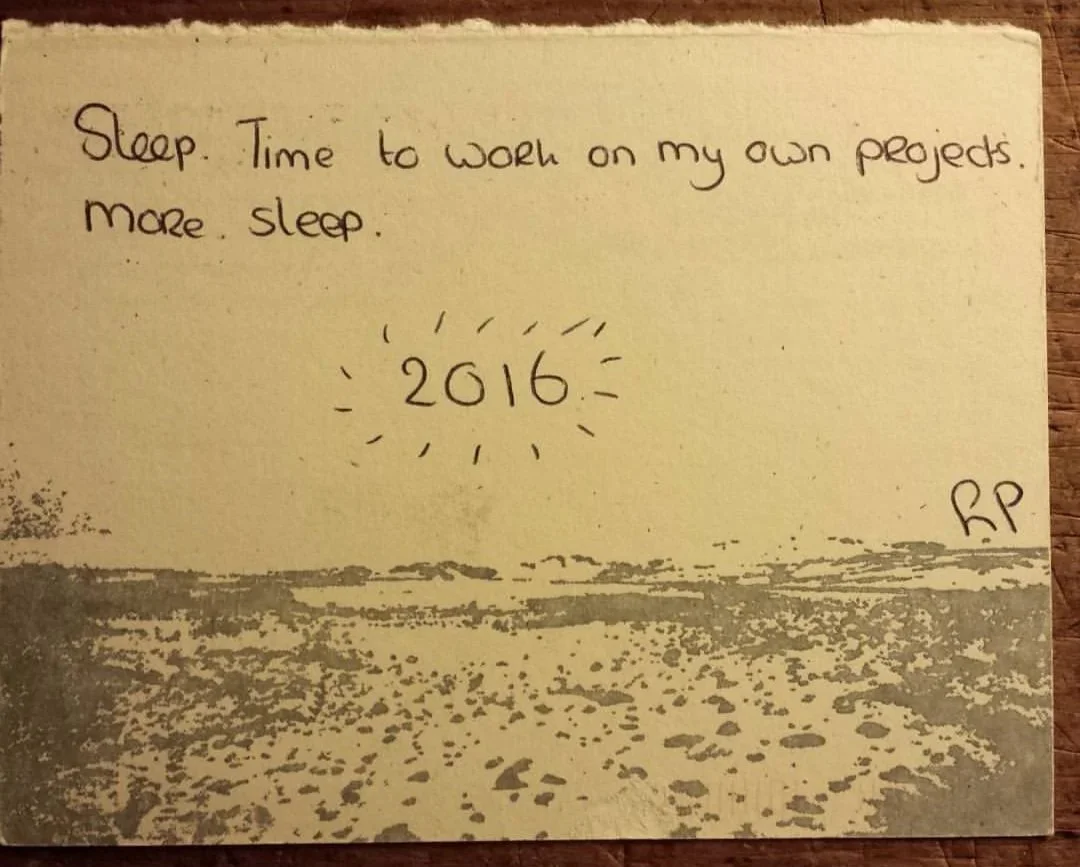 Sleep. Time to work on my own projects.
more. sleep.
2016
RP